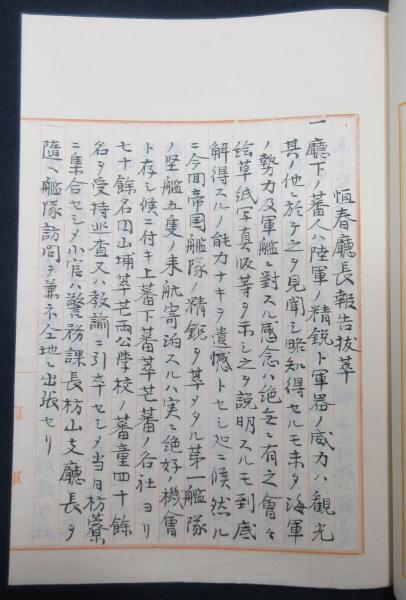 恒春廳長報告拔萃
一廳下ノ蕃人ハ陸軍ノ精鋭ト軍器ノ威力ハ観光
其ノ他ニ於テ之ヲ見聞シ略知得セルモ未タ海軍
ノ勢力及軍艦ニ對スル感念ハ絶無ニ有之會々
絵草紙写真版等ヲ示シ之ヲ説明スルモ到底
解得スルノ能力ナキヲ遺憾トセシ処ニ候然ル
ニ今回帝国艦隊ノ精鋭ヲ萃メタル第一艦隊
ノ堅艦五隻ノ来航寄泊スルハ実ニ絶好ノ機會
ト存シ候ニ付キ上蕃下蕃萃芒蕃ノ各社ヨリ
七十餘名四山埔萃芒両公學校ノ蕃童四十餘
名ヲ受持巡査又ハ教諭ニ引卒セシメ当日枋藔
ニ集合セシメ小官ハ警務課長枋山支廳長ヲ
隨ヘ艦隊訪問ヲ兼ネ仝地ニ出張セリ
海軍